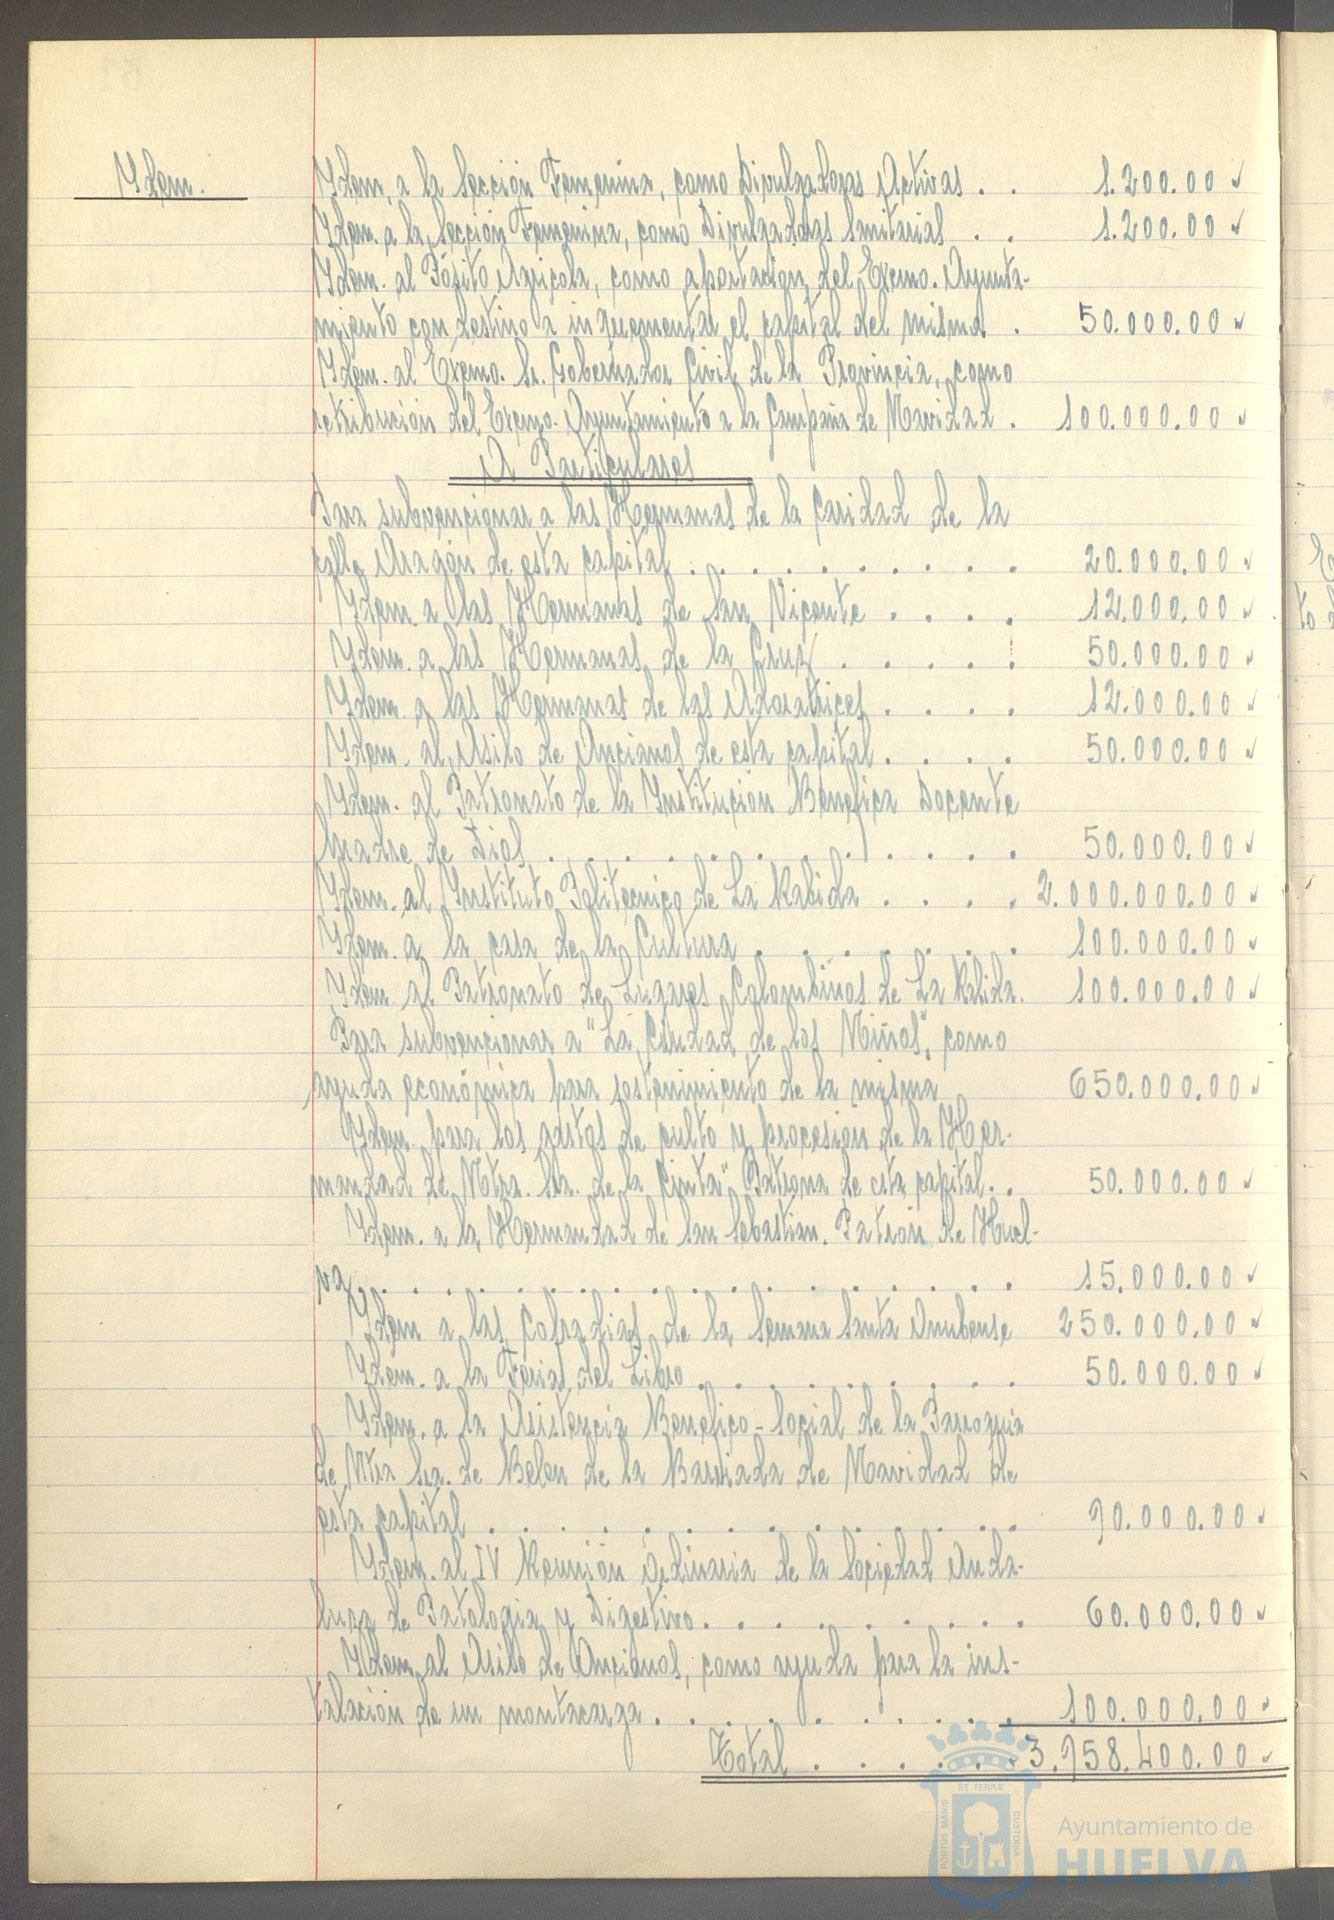 Idem.
Idem. a la Sección Femenina, como Divulgadoras Activas . . 1.200.00
Idem. a la Sección Femenina, como Divulgadoras Sanitarias . . 1.200.00
Idem. al Pósito Agricola, como aportación del Excmo. Ayunta-
miento con destino a incrementar el capital del mismo . 50.000.00
Idem. al Excmo. Sr. Gobernador Civil de la Provincia, como
retribución del Excmo. Ayuntamiento a la Campaña de Navidad . 100.000.00
A Particulares
Para subvencionar a las Hermanas de la Caridad de la
calle Aragón de esta capital . . . . . . . . . . 20.000.00
Idem. a las Hermanas de San Vicente . . . . 12.000.00
Idem. a las Hermanas de la Cruz . . . . . 50.000.00
Idem. a las Hermanas de las Adoratrices . . . . 12.000.00
Idem. al Asilo de Ancianos de esta capital . . . . 50.000.00
Idem. al Patronato de la Institución Benefica Docente
Madre de Dios . . . . . . . . . . . . 50.000.00
Idem. al Instituto Politecnico de La Rabida . . . . 2.000.000.00
Idem. a la casa de la Cultura . . . . . . . 100.000.00
Idem. al Patronato de Lugares Colombinos de La Rabida. 100.000.00
Para subvencionar a "La Ciudad de los Niños", como
ayuda económica para sostenimiento de la misma 650.000.00
Idem. para los gastos de culto y procesión de la Her-
mandad de Ntra. Sra. de la Cinta" Patrona de esta capital. . 50.000.00
Idem. a la Hermandad de San Sebastian. Patrón de Huel-
va . . . . . . . . . . . . . . . . 15.000.00
Idem a las Cofradias de la Semana Santa Onubense 250.000.00
Idem. a la Feria del Libro . . . . . . . . . 50.000.00
Idem. a la Asistencia Benefico-Social de la Parroquia
de Ntra Sra. de Belen de la Barriada de Navidad de
esta capital . . . . . . . . . . . . . 90.000.00
Idem. al IV Reunión Ordinaria de la Sociedad Anda-
luza de Patologia y Digestivo . . . . . . . . . 60.000.00
Idem. al Asilo de Ancianos, como ayuda para la ins-
talación de un montacarga . . . . . . . . . 100.000.00
Total . . . . . . 3.958.400.00
ET TERRÆ
PORTUS MARIS
CUSTODIA
Ayuntamiento de
HUELVA